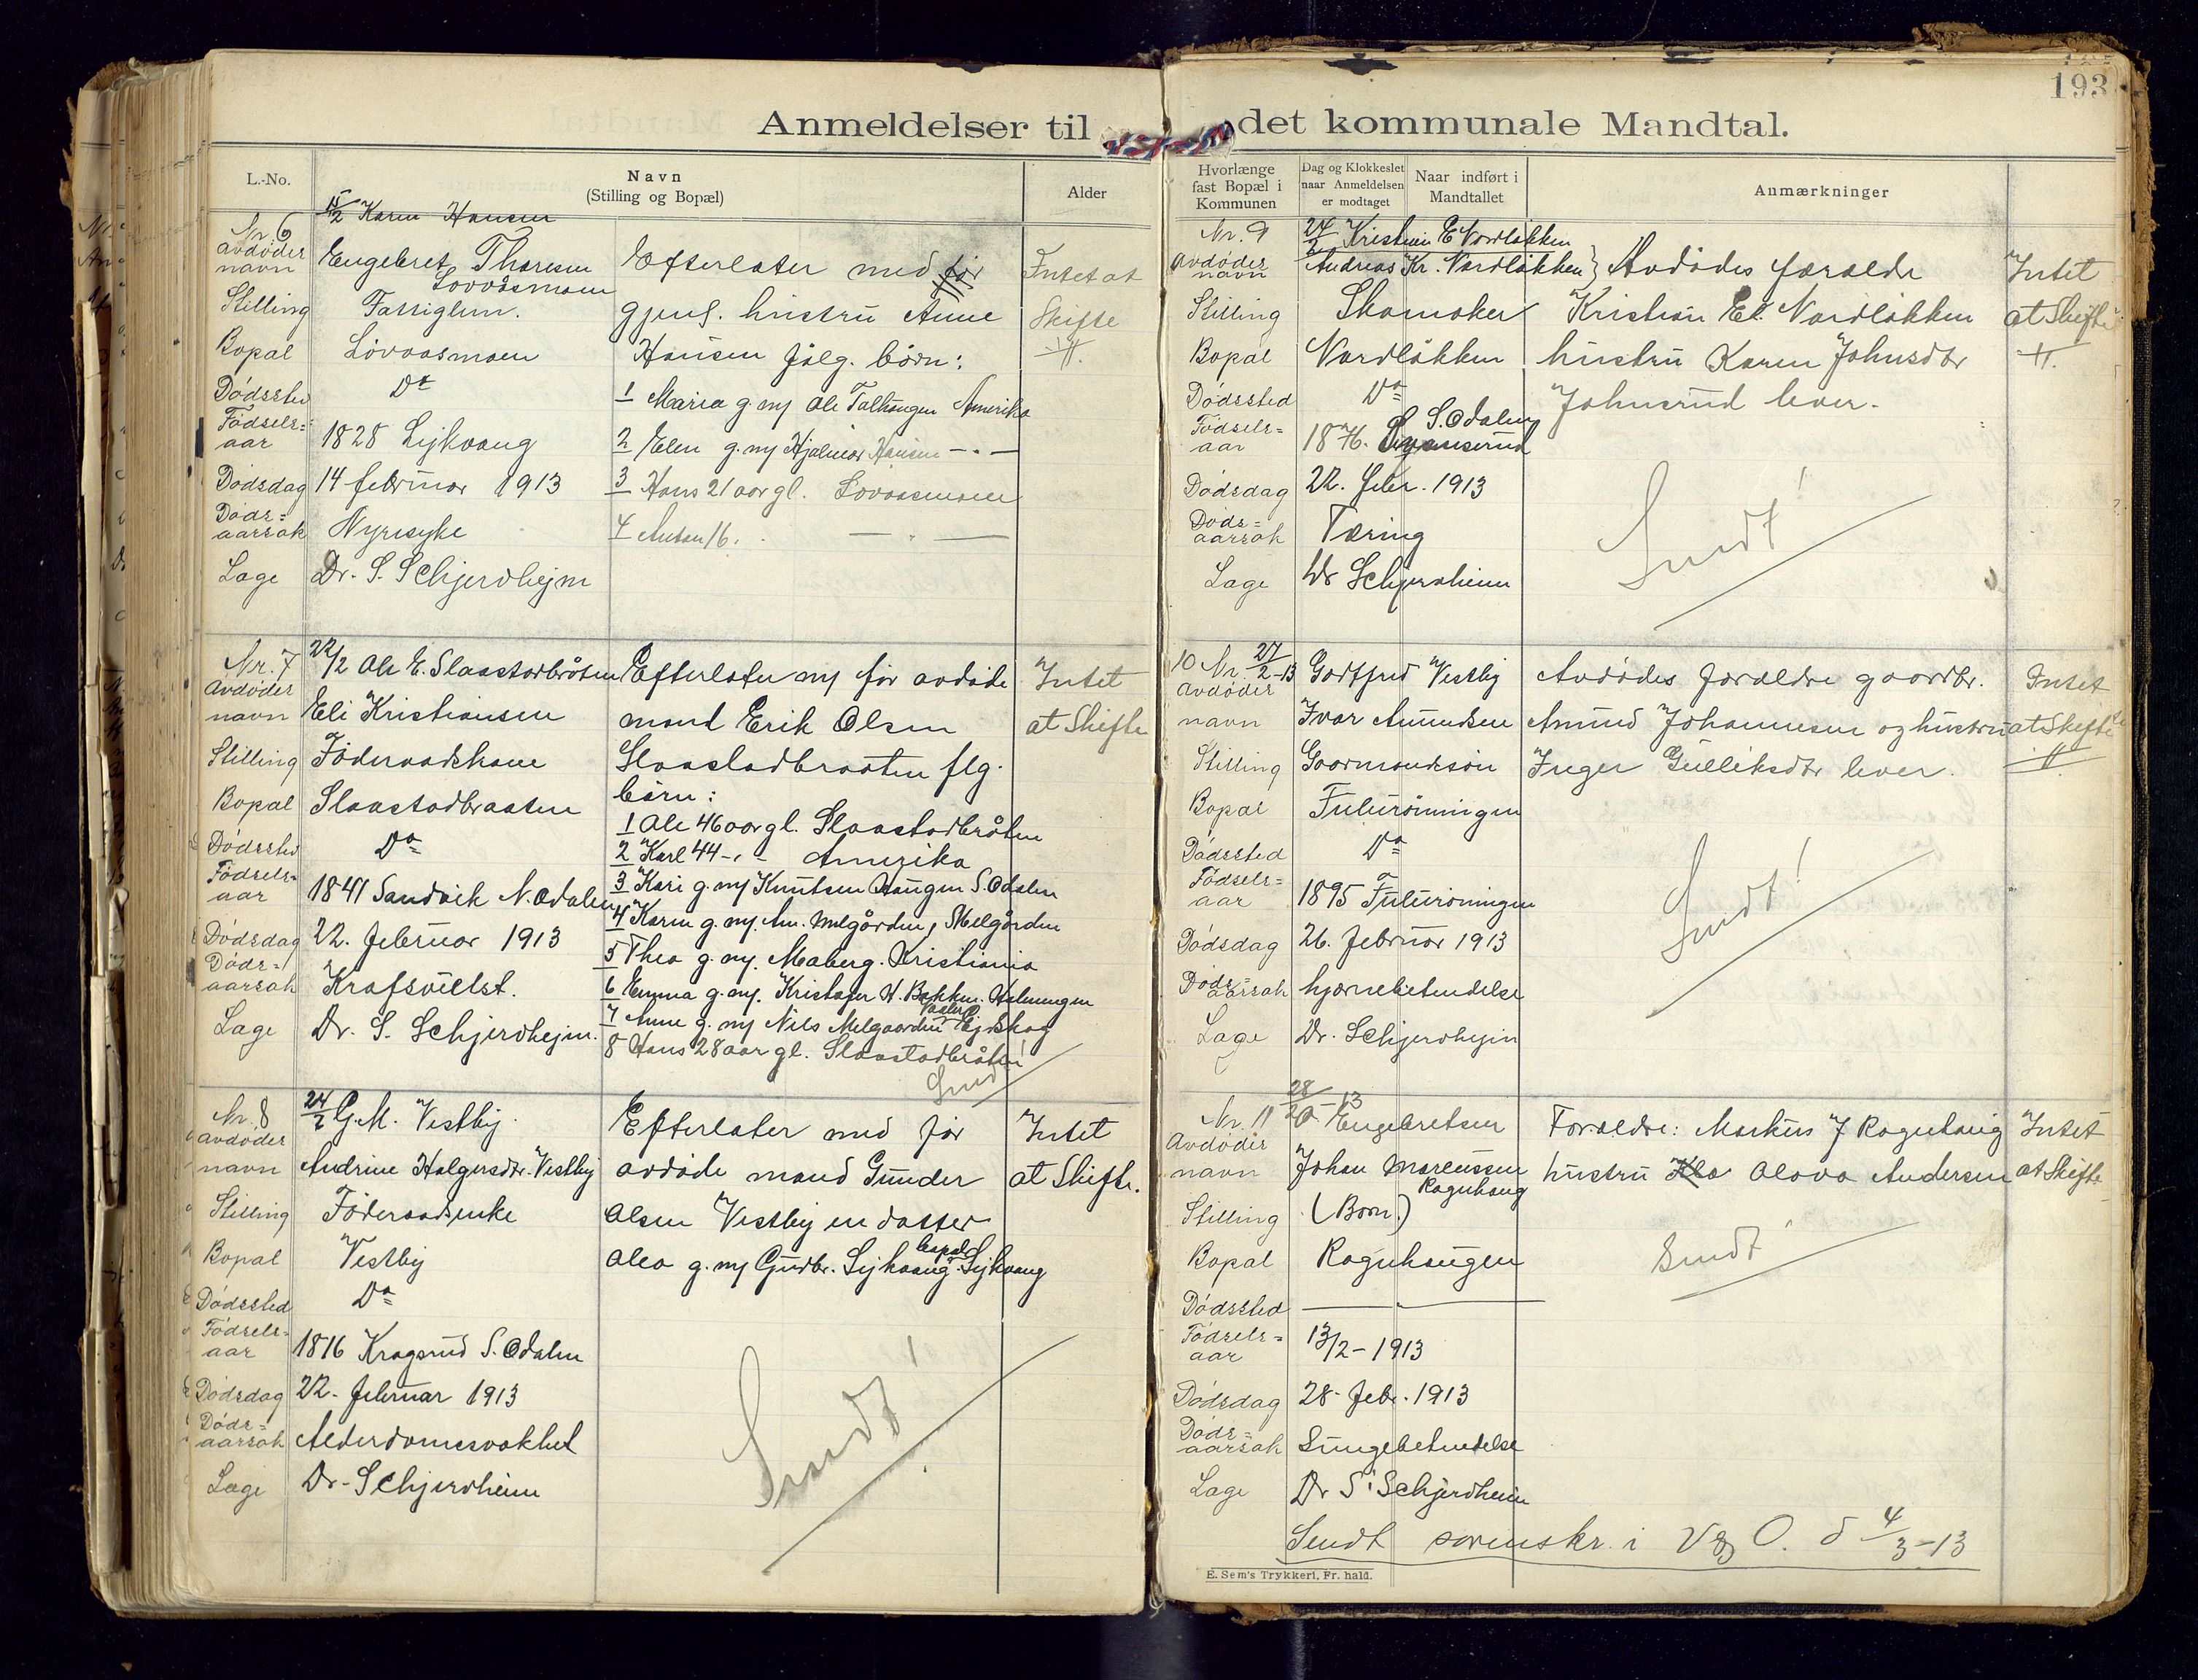 Anmeldelser til det kommunale Mandtal.
193
L.-No.
Navn
(Stilling og Bopæl)
Alder
15/2 Karen Hansen
Nr. 6
avdødes navn Engebret Thoresen Lovaasmoen
Stilling
Bopæl Lovaasmoen
Dødssted Do
Fødsels= aar 1828 Sejkvang
Dødsdag 14 februar 1913
Døds= aarsak Nyresyke
Læge Dr. S. Schjerdhejm
Efterlater med før
gjenl. hustru Anne
Hansen følg. børn:
1 Maria g. m/ Ole Talhaugen Amerika
2 Elen g. m/ Hjalmar Hansen — " —
3 Hans 21 aar gl. Lovaasmoen
4 Anton 16. — " —
Intet at
Skifte
Nr. 7 22/2 Ole E. Slaastadbråten
avdødes navn Eli Kristiansen
Stilling Føderaadskone
Bopæl Slaastadbraaten
Dødssted Do
Fødsels= aar 1841 Sandvik N. Odalen
Dødsdag 22. februar 1913
Døds= aarsak Kræfsvulst.
Læge Dr. S. Schjerdhejm.
Efterlater m/ før avdøde
mand Erik Olsen
Slaastadbraaten flg.
børn:
1 Ole 46 aar gl. Slaastadbråten
2 Karl 44 - " - Amerika
3 Kari g. m/ Knutsen Haugen S. Odalen
4 Karen g. m/ Am. Melgården, Melgården
5 Thea g. m/ Maberg. Kristiania
6 Emma g. m/ Kristofer H. Bakken.
7 Anne g. m/ Nils Melgaarden Ejdskog
8 Hans 28 aar gl. Slaastadbråten
Sendt
Intet
at Skifte
Nr. 8 24/2 G. M. Vestby
avdødes navn Andrine Holgersdtr. Vestby
Stilling Føderaadsenke
Bopæl Vestby
Dødssted Do
Fødsels= aar 1816 Kragsrud S. Odalen
Dødsdag 22. februar 1913
Døds= aarsak Alderdomssvakhet
Læge Dr. Schjerdheim
Efterlater med før
avdøde mand Gunder
Olsen Vestby en datter
Olea g. m/ Gudbr. Sejkvang bopæl Sejkvang
Sendt!
Intet
at Skifte.
Hvorlænge fast Bopæl i Kommunen
Dag og Klokkeslet naar Anmeldelsen er modtaget
Naar indført i Mandtallet
Anmærkninger
Nr. 9 24/2 Kristian E Nordløkken
avdødes navn Andreas Kr. Nordløkken
Stilling Skomaker
Bopæl Nordløkken
Dødssted Do
Fødsels= aar 1876. S. Odalen
Dødsdag 22. febr. 1913
Døds= aarsak Tæring
Læge Dr Schjerdheim
Avdødes forældre
Kristian Ek. Nordløkken
hustru Karen Johnsdtr
Johnsrud lever.
Sendt!
Intet
at Skifte
10 Nr. 27/2-13 Godtfred Vestby
avdødes navn Ivar Amundsen
Stilling Gaarmandsøn
Bopæl Fulurønningen
Dødssted Do
Fødsels= aar 1895 Fulurøningen
Dødsdag 26. februar 1913
Døds= aarsak hjernebetendelse
Læge Dr. Schjerdhejm
Avdødes forældre gaardbr.
Amund Johannesen og hustru
Inger Gulliksdtr lever.
Sendt!
Intet
at Skifte
Nr. 11 28/2-13 O. Engebretsen
Avdødes navn Johan Marcussen Ragnhaug
Stilling (Barn.)
Bopæl Ragnhaugen
Dødssted — " —
Fødsels= aar 13/2 - 1913
Dødsdag 28. febr. 1913
Døds= aarsak Lungebetendelse
Læge Dr S. Schjerdheim
Forældre: Markus J Ragnhaug
hustru Olava Andersen
Sendt
Intet
at Skifte
Sendt sorenskr. i V & O. d 4/3-13
E. Sem's Trykkeri, Fr. hald.